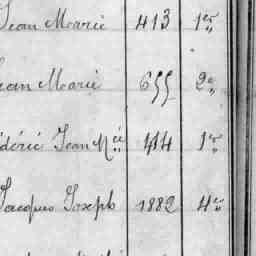 Jean Marie 413 1er
Jean Marie 655 2e
édéric Jean Mie 414 1er
Jacques Joseph 1882 4e